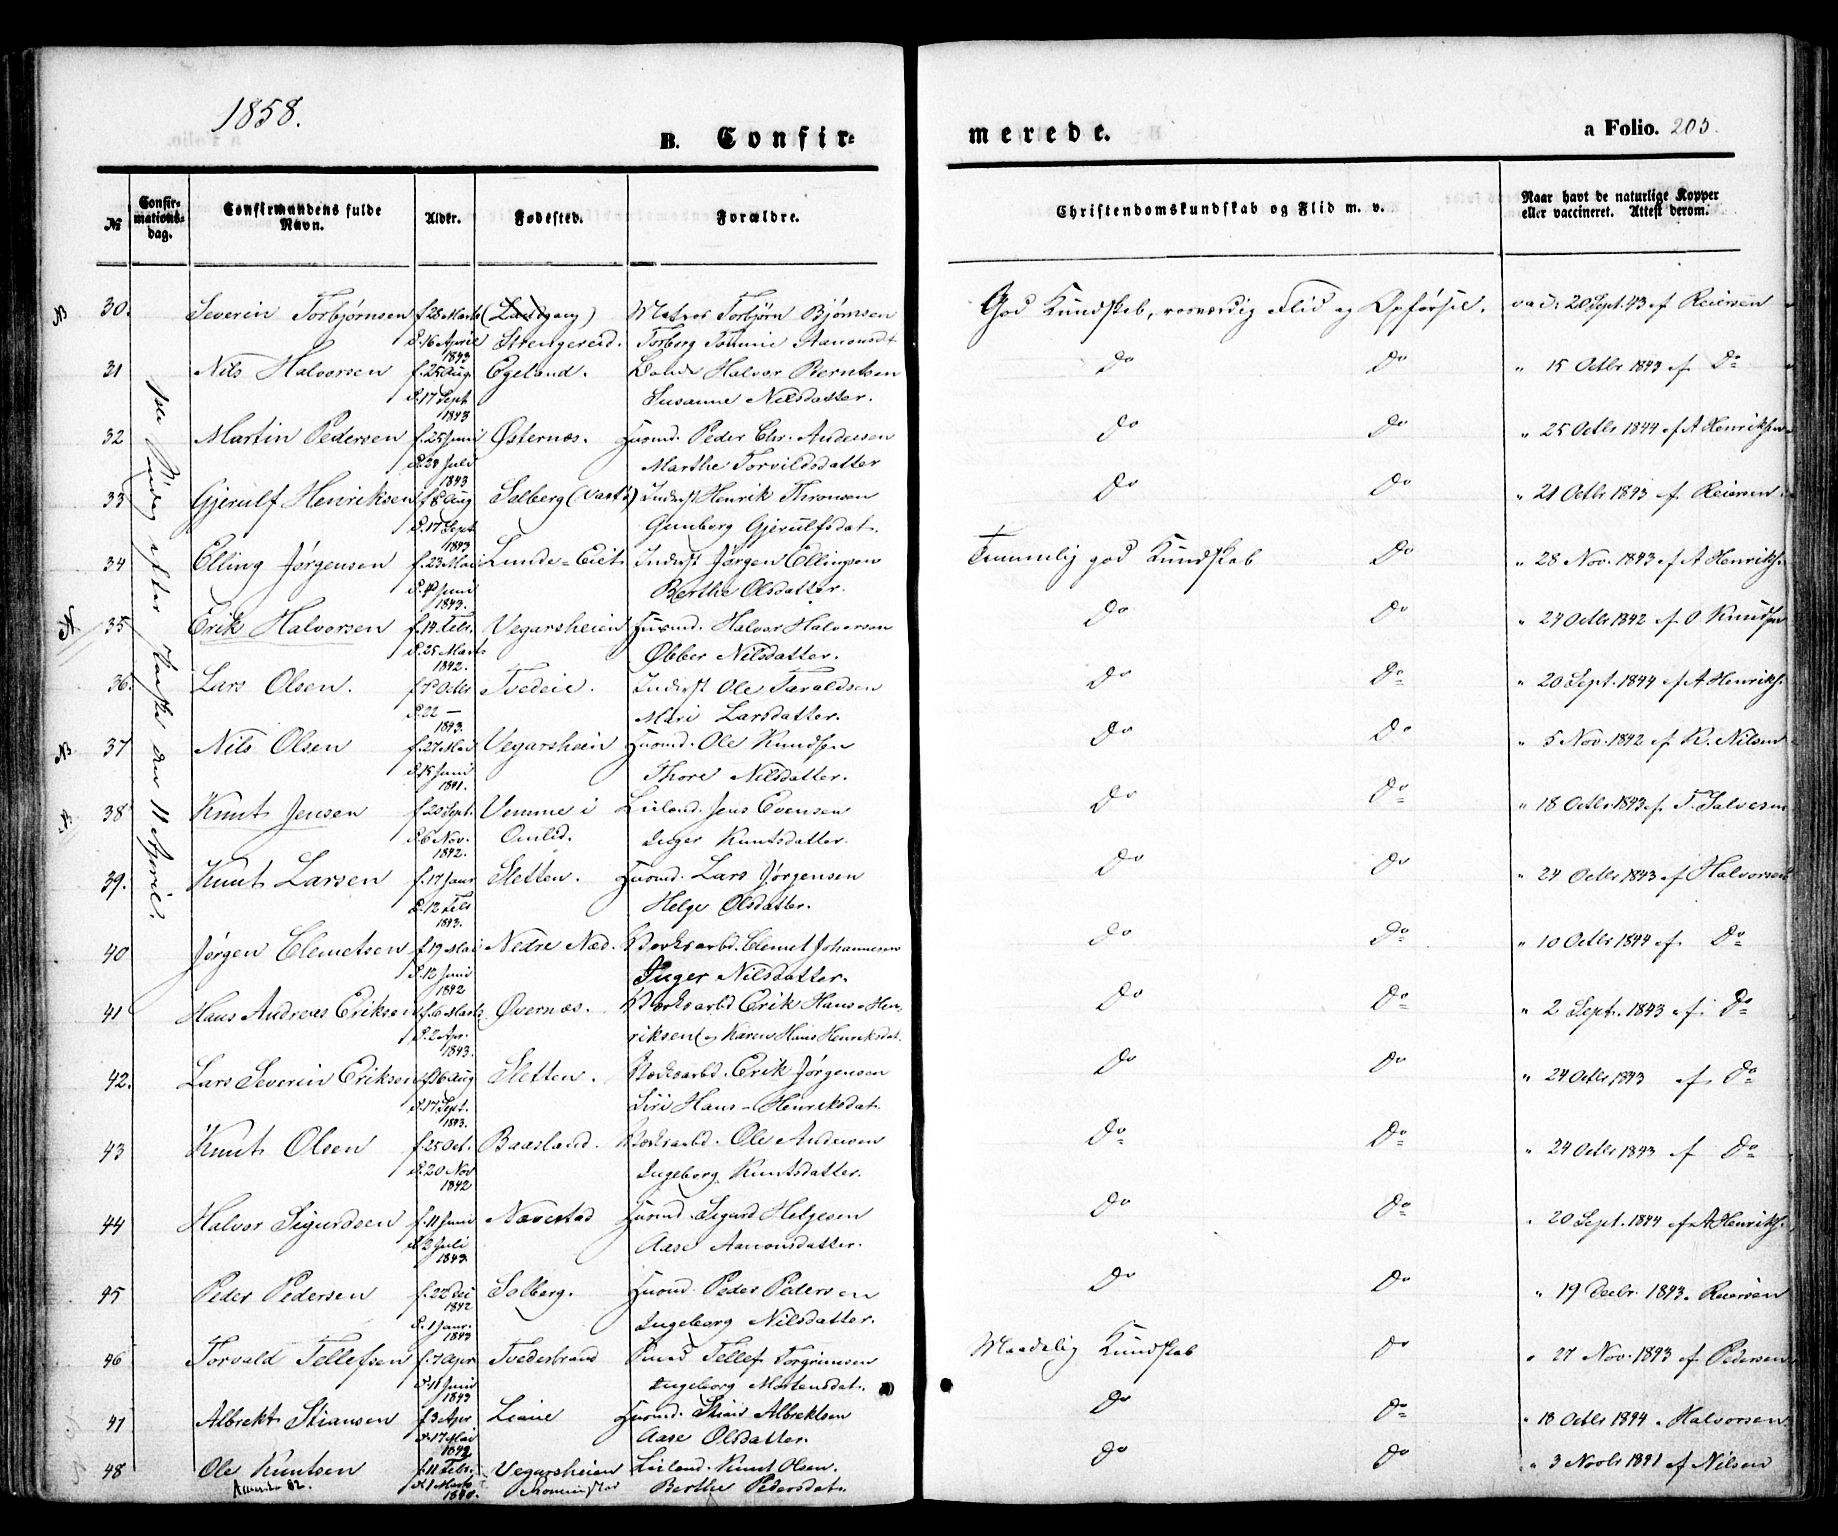 1858.
B. Confir-
merede.
a Folio. 205.
№
Confir-
mations-
dag.
Confirmandens fulde
Navn.
Alder.
Fødested.
Forældre.
Christendomskundskab og Flid m. v.
Naar havt de naturlige Kopper
eller vaccineret. Attest derom.
1ste Søndag efter Paaske den 11 April.
30. Severin Torbjørnsen f. 28 Marts Matros Torbjørn Bjørnsen God Kundskab, Flid og Opførsel. vac. 20 Sept. 43 af Reiersen
d. 16 April Strengereid. Torborg Tomine Aanonsdt
1843
31 Nils Halvorsen f. 25 Aug. Egeland. Halvor Berntsen Do Do " 15 Octbr 1843 af Do
d. 17 Sept Susanne Nilsdatter.
1843
32 Martin Pedersen f. 25 Juni Østernæs. Huusmd. Peder Chr. Andersen Do Do " 25 Octbr 1844 af A Henriksen
d. 24 Juli Marthe Torvildsdatter
1843
33 Gjerulf Henriksen f. 8 Aug Solberg Inderst Henrik Thronsen Do Do " 21 Octbr 1843 af Reiersen
d. 17 Sept Gunborg Gjerulfsdat.
1843
34 Elling Jørgensen f. 23 Mai Lunde-Eiet Inderst Jørgen Ellingsen Temmelig god Kundskab Do " 28 Nov. 1843 af A Henriks.
d. Juni Berthe Olsdatter.
1843.
35 Erik Halvorsen f. 14 Febr. Vegarsheien Huusmd. Halvor Halvorsen Do Do " 24 Octbr 1842 af O Knudsen
d. 25 Marts Øbber Nilsdatter.
1842.
36. Lars Olsen. f. Octbr Tvedeie. Inderst Ole Taraldsen Do Do " 20 Sept. 1844 af A Henriks.
d. 22 — Mari Larsdatter.
1843.
NB 37 Nils Olsen f. 27 Mai Vegarsheien Huusmd. Ole Knudsen Do Do " 5 Nov. 1842 af K. Nilsen
d. 15 Juni Thore Nilsdatter.
1841.
38 Knut Jensen f. 20 Sept. Vemme i Leiland. Jens Evensen Do Do " 18 Octbr 1843 af T. Salvesen
d. 6 Nov. Omlid. Inger Knutsdatter.
1842.
39. Knut Larsen f. 17 Janr Sletten. Huusmd. Lars Jørgensen Do Do " 24 Octbr 1843 af Halvorsen
d. 12 Febr Helge Olsdatter.
1843.
40 Jørgen Clemetsen f. 19 Mai Nedre Næs. Værksarbd. Clemet Johannesen Do Do " 10 Octbr 1844 af Do
d. 12 Juni Inger Nilsdatter.
1842
41 Hans Andreas Eriksen f. 6 Marts Øvernæs. Værksarbd Erik Hans-Hen- Do Do " 2 Sept. 1843 af Do
d. 2 Apr. riksen og Karen Hans Henriksdat.
1843.
42. Lars Severin Eriksen f. 16 Aug Sletten. Værksarbd. Erik Jørgensen Do Do " 24 Octbr 1843 af Do
d. 17 Sept. Siri Hans-Henriksdat.
1843.
43 Knut Olsen f. 25 Oct. Baasland. Værksarbd. Ole Andersen Do Do " 24 Octbr 1843 af Do
d. 20 Nov Ingeborg Knutsdatter.
1842
44 Halvor Sigurdsen f. 11 Juni Navestad Huusmd. Sigurd Helgesen Do Do " 20 Sept. 1844 af A Henriks.
d. 2 Juli Aase Aanonsdatter.
1843.
45 Peder Pedersen f. 22 Dec Solberg. Huusmd. Peder Pedersen Do Do " 19 Decbr. 1843. Reiersen
1842
d. 1 Janr. Ingeborg Nilsdatter.
1843
46 Torvald Tellefsen f. 7 Apr Tvedestrand Tellef Torgrimsen Maadelig Kundskab Do " 27 Nov. 1843 af Pedersen
d. 11 Juni Ingeborg Mortensdat.
1843
47 Albrekt Stiansen f. 3 Apr Leiane Huusmd. Stian Albrektsen Do Do " 18 Octbr 1844. Halvorsen
d. 17 Mai Aase Olsdatter.
1842
48 Ole Knutsen f. 11 Febr. Vegarsheien Leiland. Knut Olsen. Do Do " 3 Novbr 1841 af Nilsen
d. 1 Marts Berthe Pedersdat.
1840.